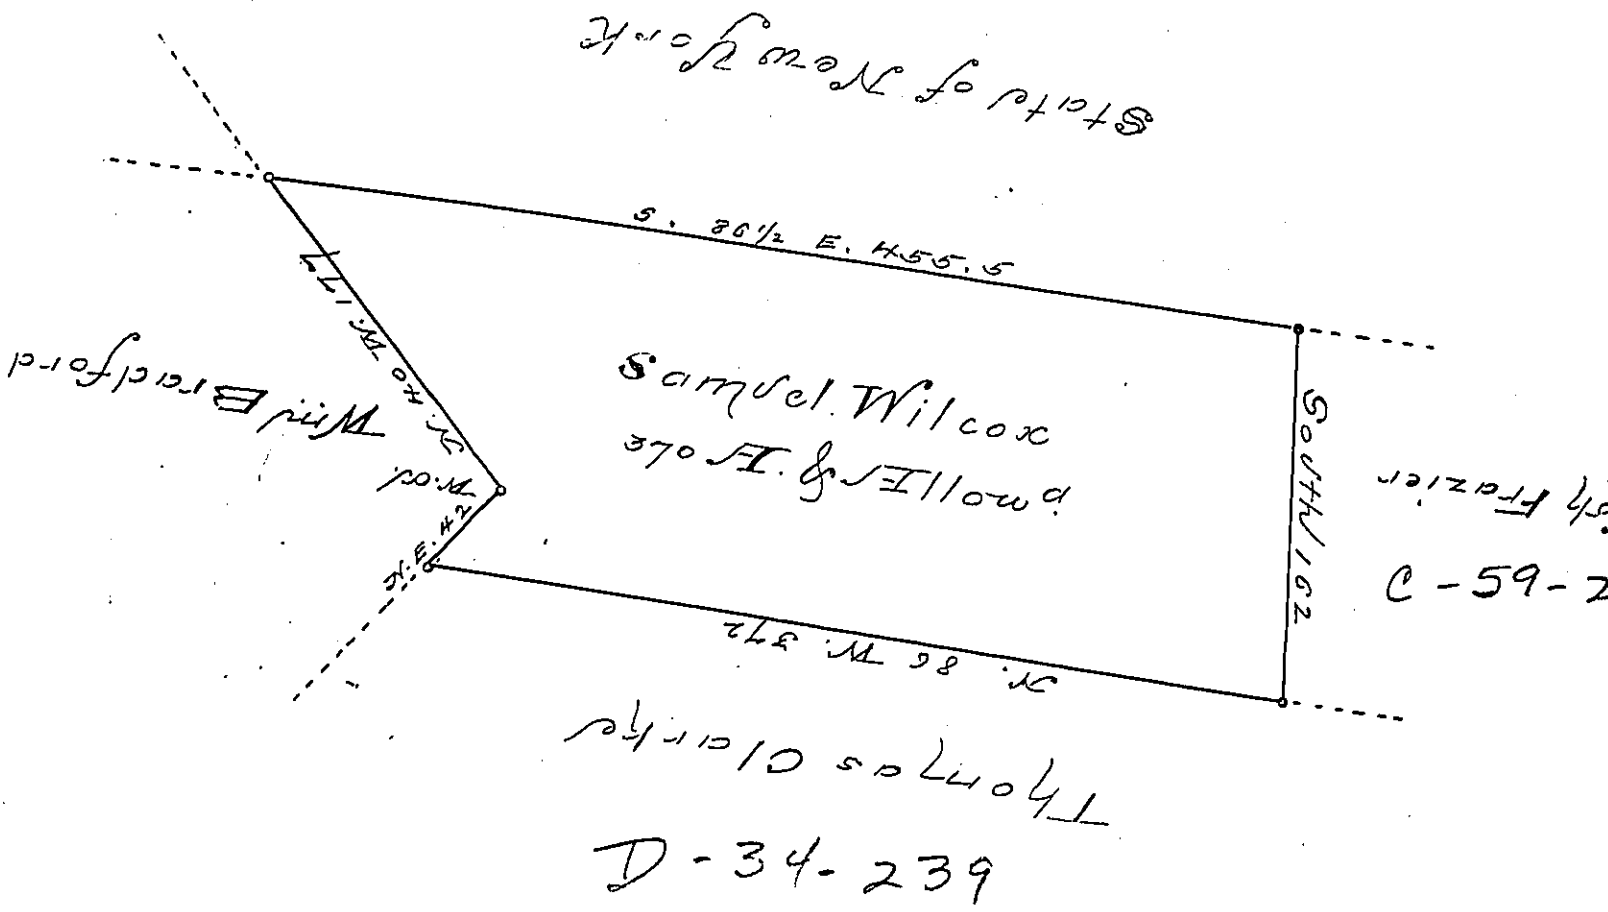 State of New York
S. 86½ E. 455.5
N. 40 W. 177
Wm Bradford
W. Od.
N. E. 42
Samuel Wilcox
370 A. & Allowd
South 162
Frazier
C-59-2
N. 86 W. 372
Thomas Clarke
D-34-239